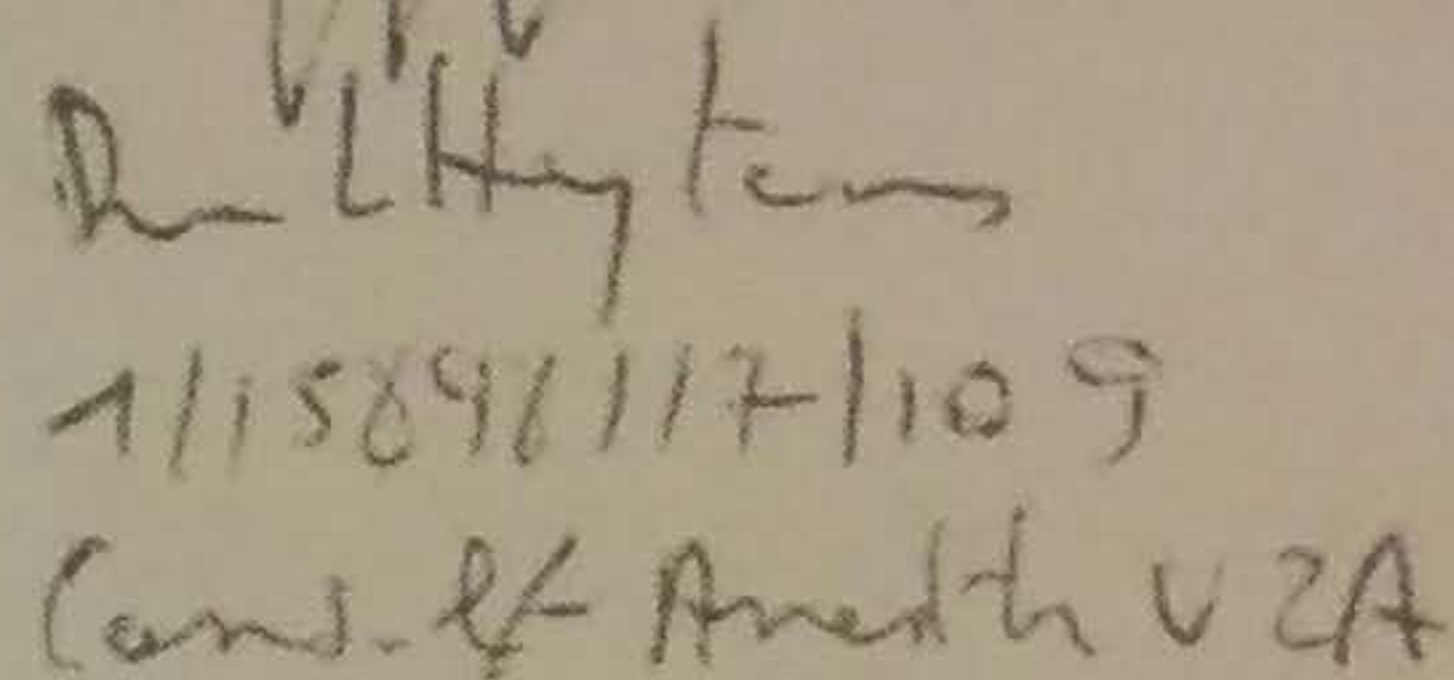 Dr L Heytens
1/15896/17/109
Cand. Anesth UZA